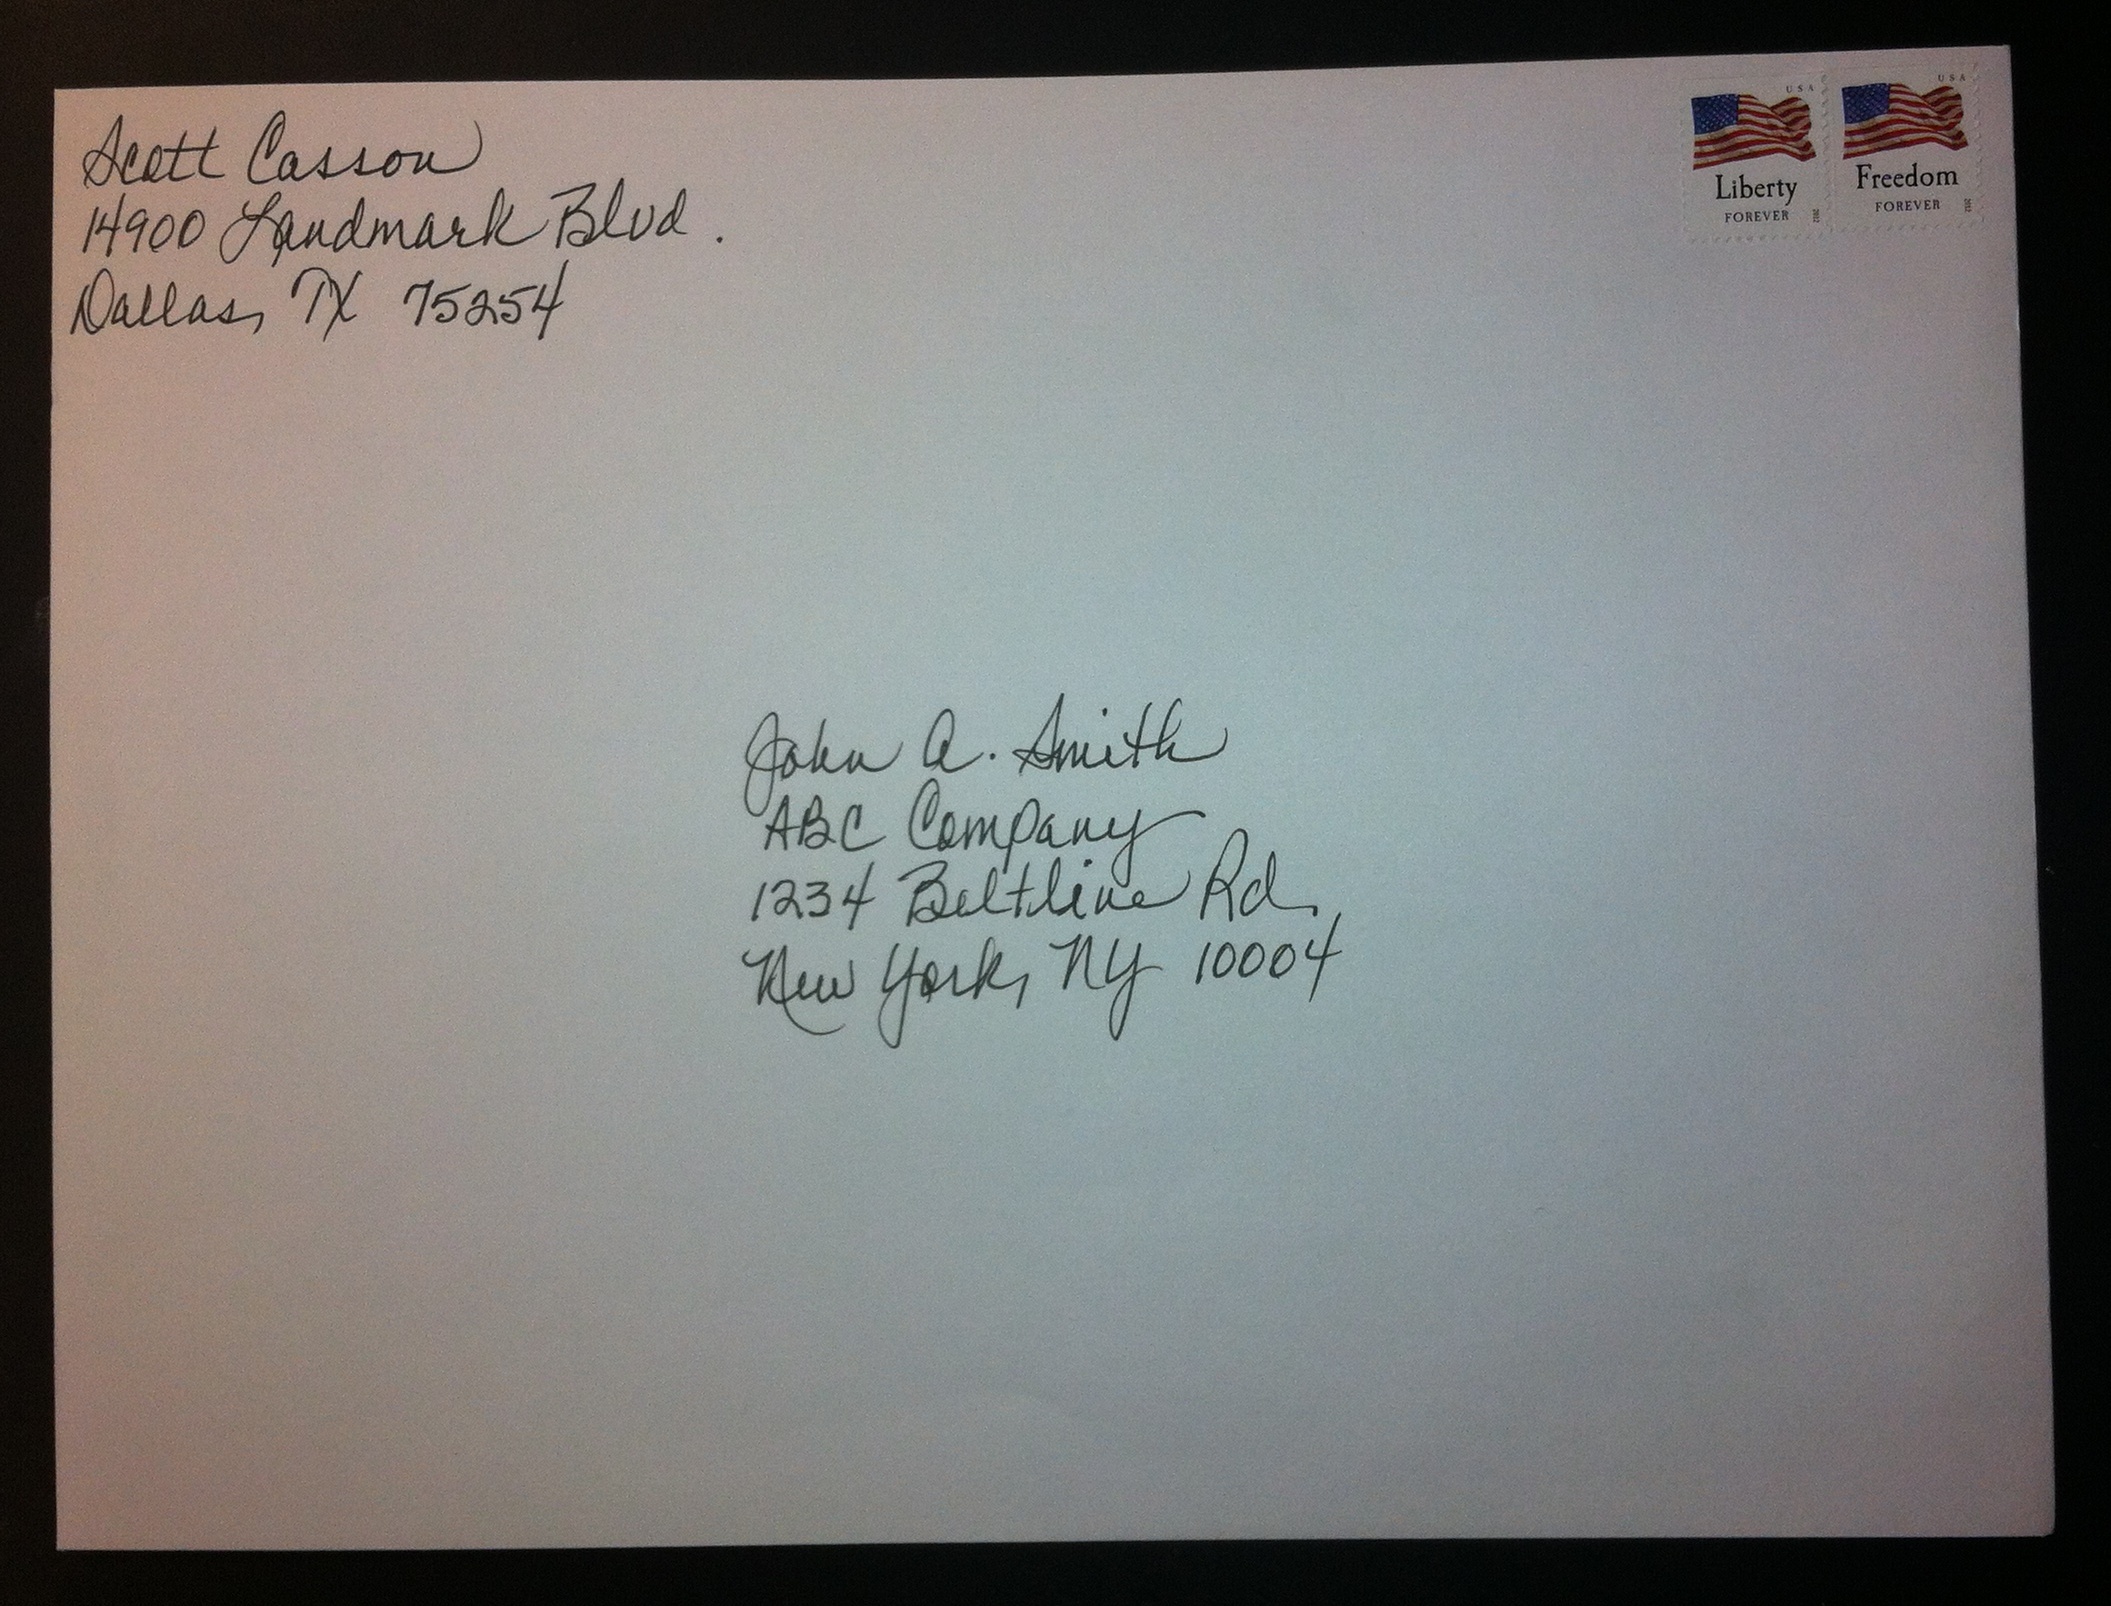 Scott Casson
14900 Landmark Blvd.
Dallas, TX 75254
USA
Liberty
FOREVER
2012
USA
Freedom
FOREVER
2012
John A. Smith
ABC Company
1234 Beltline Rd.
New York, NY 10004